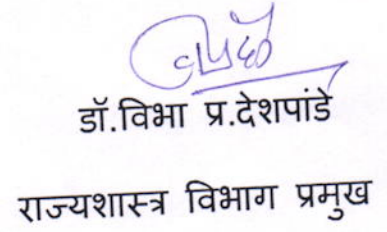 डॉ.विभा प्र.देशपांडे
राज्यशास्त्र विभाग प्रमुख